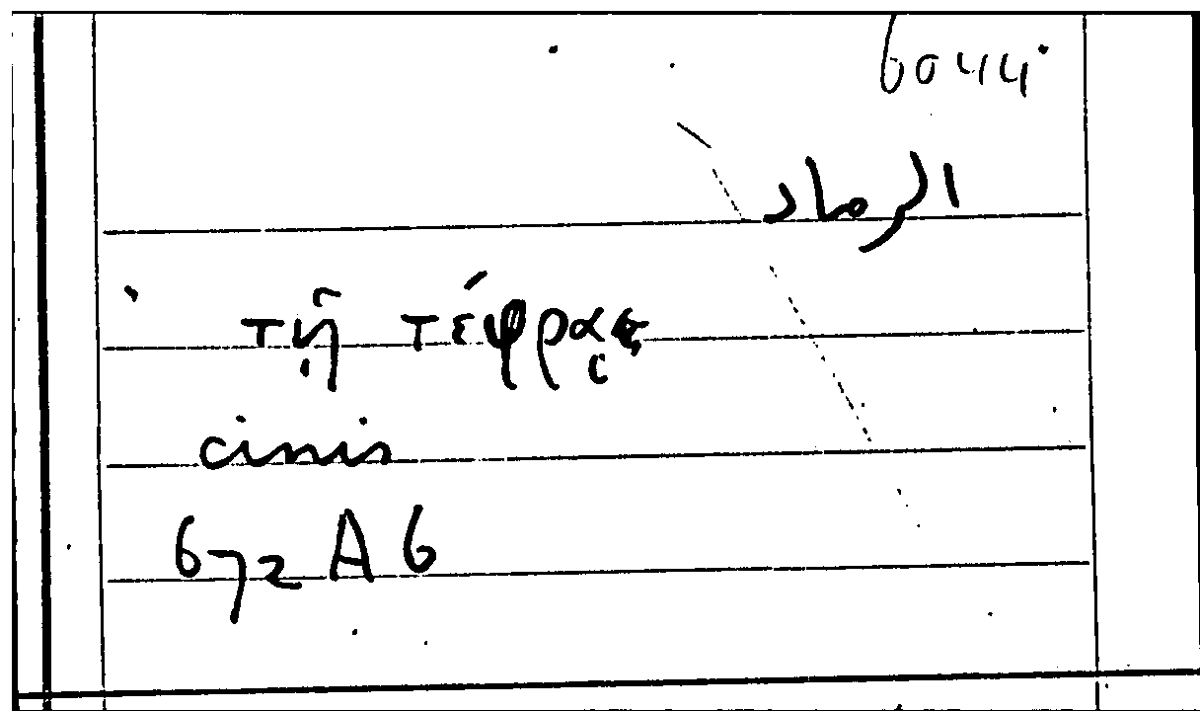 6044
الرماد
τῇ τέφρᾳ
cinis
672 A 6